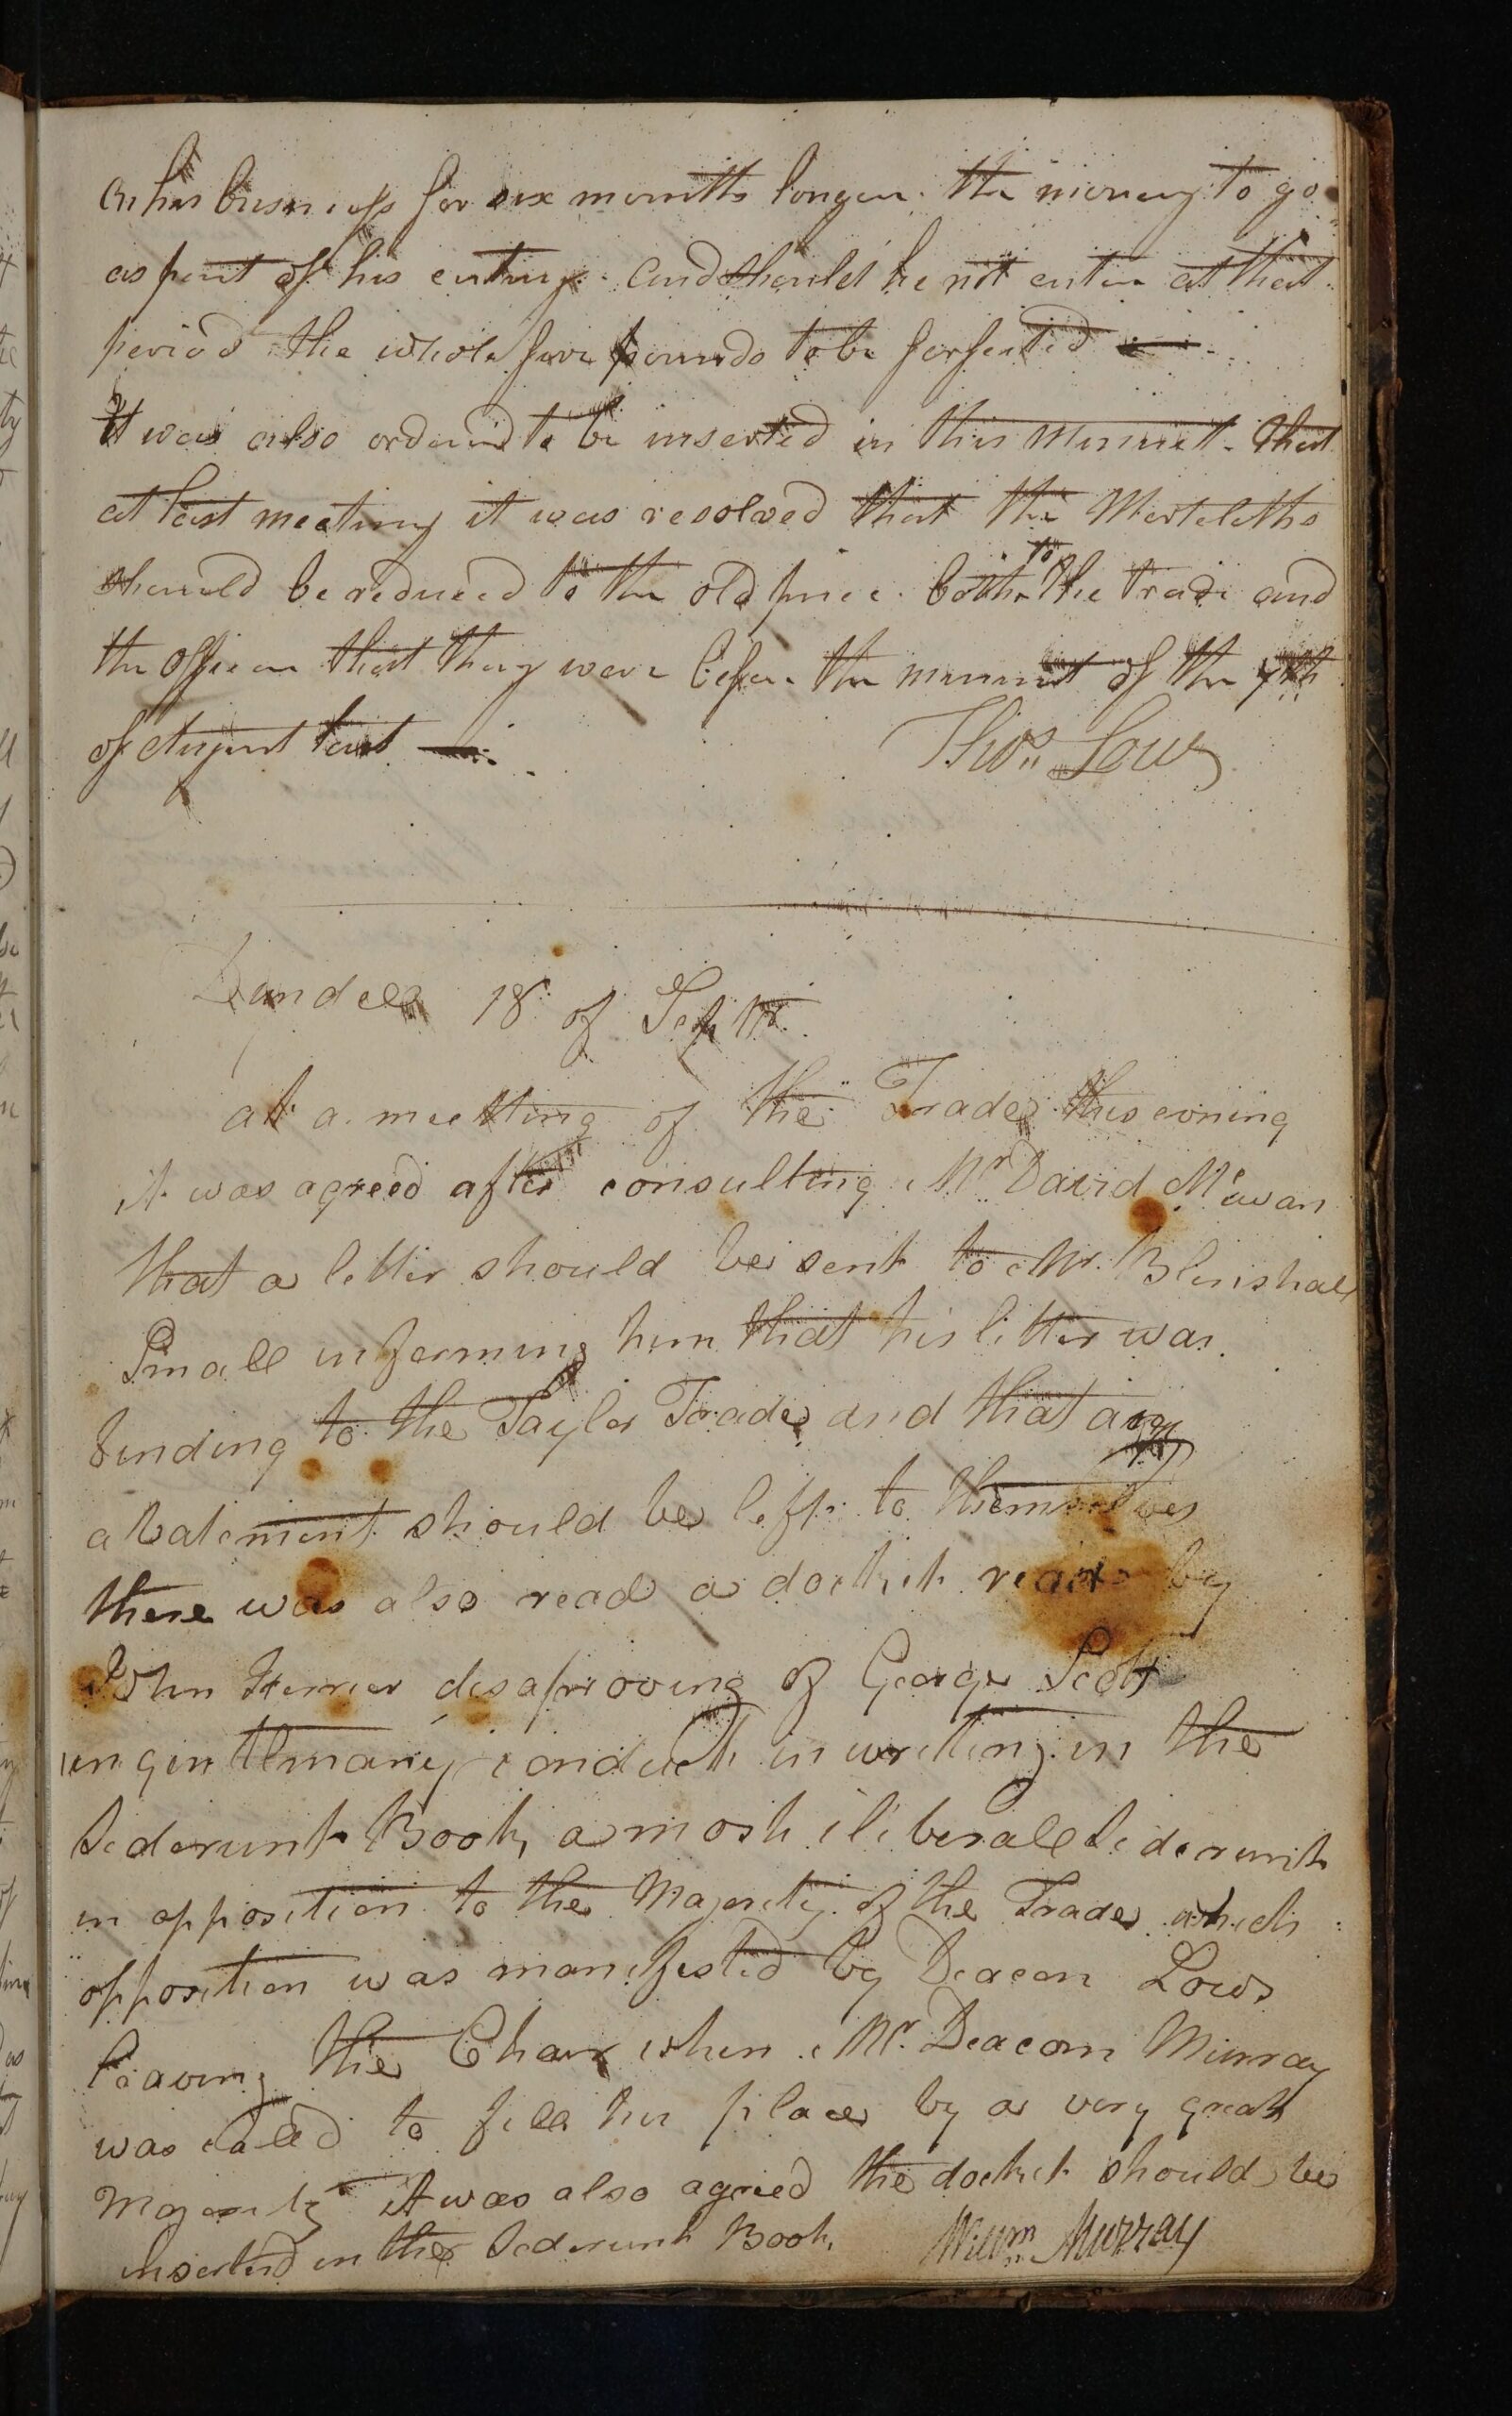 on his business for six months longer. the money to go
as part of his entry. and should he not enter at that
period the whole five pounds to be forfeited
It was also ordered to be inserted in this Minuet. that
at last meeting it was resolved that the Mortcloths
should be reduced to the old price. both to the trade and
the officer that they were before the minuet of the 7th
of August last
Thos. Low
Dundee 18 of Septr.
at a meetting of the Trade this evning
it was agreed after consulting Mr. David Mcwan
that a letter should be sent to Mr. Blinshall
Small informing him that his letter was
binding to the Taylor Trade and that any
abatement should be left to themselves
there was also read a docket read by
John Ferrier disaproving of George Scott
ungentlmany conduct in writing in the
Sederunt Book, a most iliberall Sederunt
in opposition to the Majority of the Trade which
opposition was manifested by Deacon Lows
leaving the Chair when Mr. Deacon Murray
was called to fill his place by a very great
Majority it was also agreed the docket should be
inserted in the Sederunt Book,
Willm. Murray